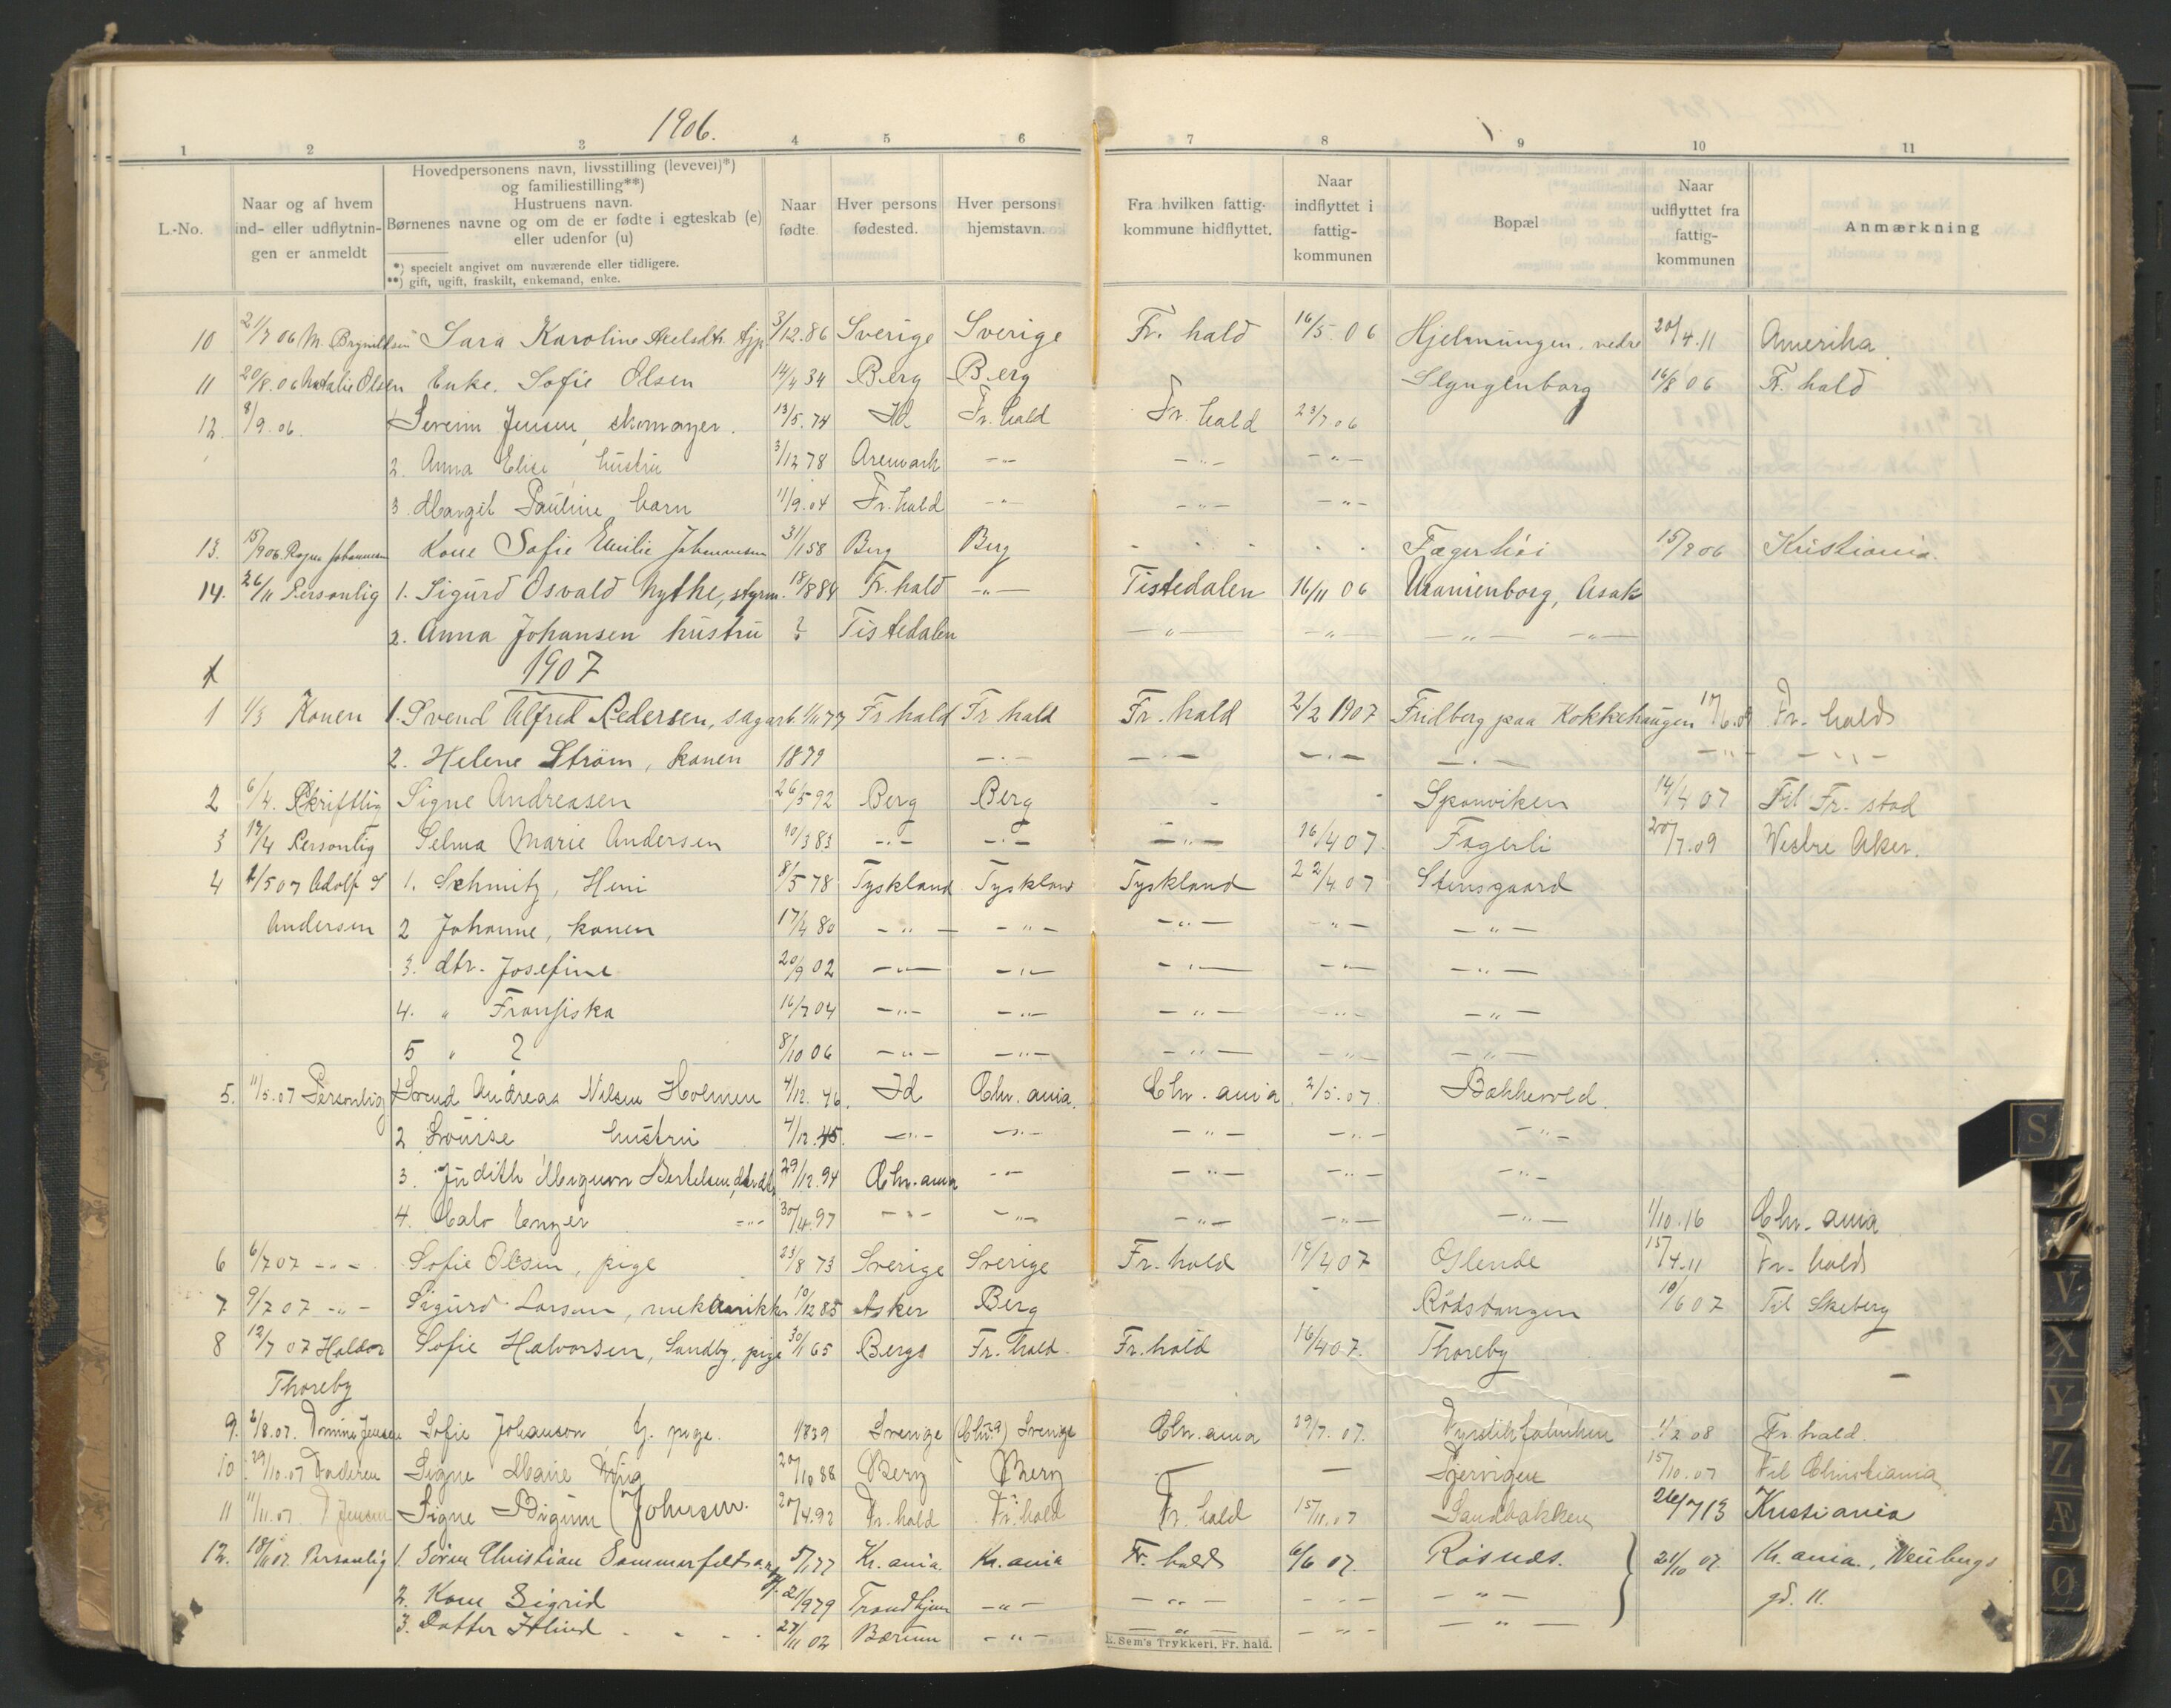 1906.
1 2 3 4 5 6 7 8 9 10 11
L.-No.
Naar og af hvem ind- eller udflytnin- gen er anmeldt
Hovedpersonens navn, livsstilling (levevei)*)
og familiestilling**)
Hustruens navn.
Børnenes navne og om de er fødte i egteskab (e)
eller udenfor (u)
*) specielt angivet om nuværende eller tidligere.
**) gift, ugift, fraskilt, enkemand, enke.
Naar fødte
Hver persons fødested.
Hver persons hjemstavn.
Fra hvilken fattig- kommune hidflyttet.
Naar indflyttet i fattig- kommunen
Bopæl
Naar udflyttet fra fattig- kommunen
Anmærkning
10 21/7 06 M. Sara Karoline 3/12.86 Sverige Sverige Fr. hald 16/5 06 Hjelmungen. nedre 20/4.11 Amerika
11 20/8.06 Natalie Olsen Enke. Sofie Olsen 14/4 34 Berg Berg Slyngenborg 16/8 06 Fr. hald
12. 8/9.06. 1 Severin Jensen, skomager. 13/5.74 Id Fr. hald Fr. hald 23/7 06
2. Anna Elise hustru 3/12 78 Aremark -"- -"- -"-
3. Margit Pauline barn 11/9.04 Fr. hald -"- -"- -"-
13. 15/9 06 Johannesen Kone Sofie Emilie Johannesen 31/1 58 Berg Berg Fagerhøi 15/9 06 Kristiania.
14. 26/11 Personlig 1. Sigurd Osvald Nythe, styrm. 18/8 84 Fr. hald -"- Tistedalen 16/11 06 Uranienborg, Asak
2. Anna Johansen hustru ? Tistedalen -"- -"- -"- -"-
1907
1 1/3 Konen 1. Svend Alfred Pedersen, sagarb. 1/11 77 Fr hald Fr hald Fr. hald 2/2 1907 Fridberg paa Kokkehaugen 17/6.09 Fr. hald
2. Helene Strøm, konen 1879 -"- -"- -"- -"- -"- -"-
2 6/4. Skriftlig Signe Andreasen 26/5 92 Berg Berg Sponviken 14/4 07 Til Fr. stad
3 17/4 Personlig Selma Marie Andersen 10/3 83 -"- -"- -"- 16/4 07 Fagerli 20/7.09 Vestre Aker.
4 1/5 07 Adolf S 1. Schmitz, Heni 8/5 78 Tyskland Tyskland Tyskland 22/4 07 Stensgaard
Andersen 2 Johanne, konen 17/4 80 -"- -"- -"- -"- -"-
3. dtr. Josefine 20/9 02 -"- -"- -"- -"- -"-
4. " Fransiska 16/7 04 -"- -"- -"- -"- -"-
5 " ? 8/10 06 -"- -"- -"- -"- -"-
5. 11/5.07 Personlig 1 Svend Andreas Nilsen Holmen 4/12. 76. Id Chr. ania. Chr. ania 2/5.07. Bakkevold.
2 Lovise hustru 4/12.45. -"- -"- -"- -"- -"-
3. Judith Mignon Bertelsen, 29/12.94 Chr. ania -"- -"- -"- -"-
4. -"- 30/4 97 -"- -"- -"- -"- -"- 1/10.16 Chr. ania
6 6/7 07 -"- Sofie Olsen, pige 23/8 73 Sverige Sverige Fr. hald 19/2 07 Oslende 15/4.11 Fr. hald
7 9/7 07 -"- Sigurd Larsen, mekanikker 10/12 85 Asker Berg Rødstangen 10/6 07 Til Skeberg
8 12/7 07 Haldor Sofie Halvorsen, Sandby, pige 30/1 65 Bergs Fr. hald Fr. hald 16/4 07. Thoreby
Thoreby
9. 2/8.07. Sofie Johanson G. pige. 1839 Sverige (Chr.a) Sverige Chr. ania 29/7. 07. 1/2 08 Fr. hald.
10 29/10.07 Signe Marie 20/10 88 Berg Berg 15/10.07 Til Christiania
11 11/11.07. Jensen Signe Bigum (Johnsen. 20/4.92 Fr. hald Fr. hald Fr. hald 15/11.07 Sandbakken 26/7 13 Kristiania
12. 18/11 07. Personlig 1. Søren Christian Sommerfeldt 5/1 77 Kr. ania. Kr. ania Fr. hald 6/6 07. Røsnæs. 21/10 07. Kr. ania., Neubergs
2. Kone Sigrid 21/9 79 Trondhjem -"- -"- -"- -"- gd. 11.
3. Datter 27/11 02 Bærum -"- -"- -"- -"-
E. Sem's Trykkeri, Fr. hald.
S
V
X
Y
Z
Æ
Ø